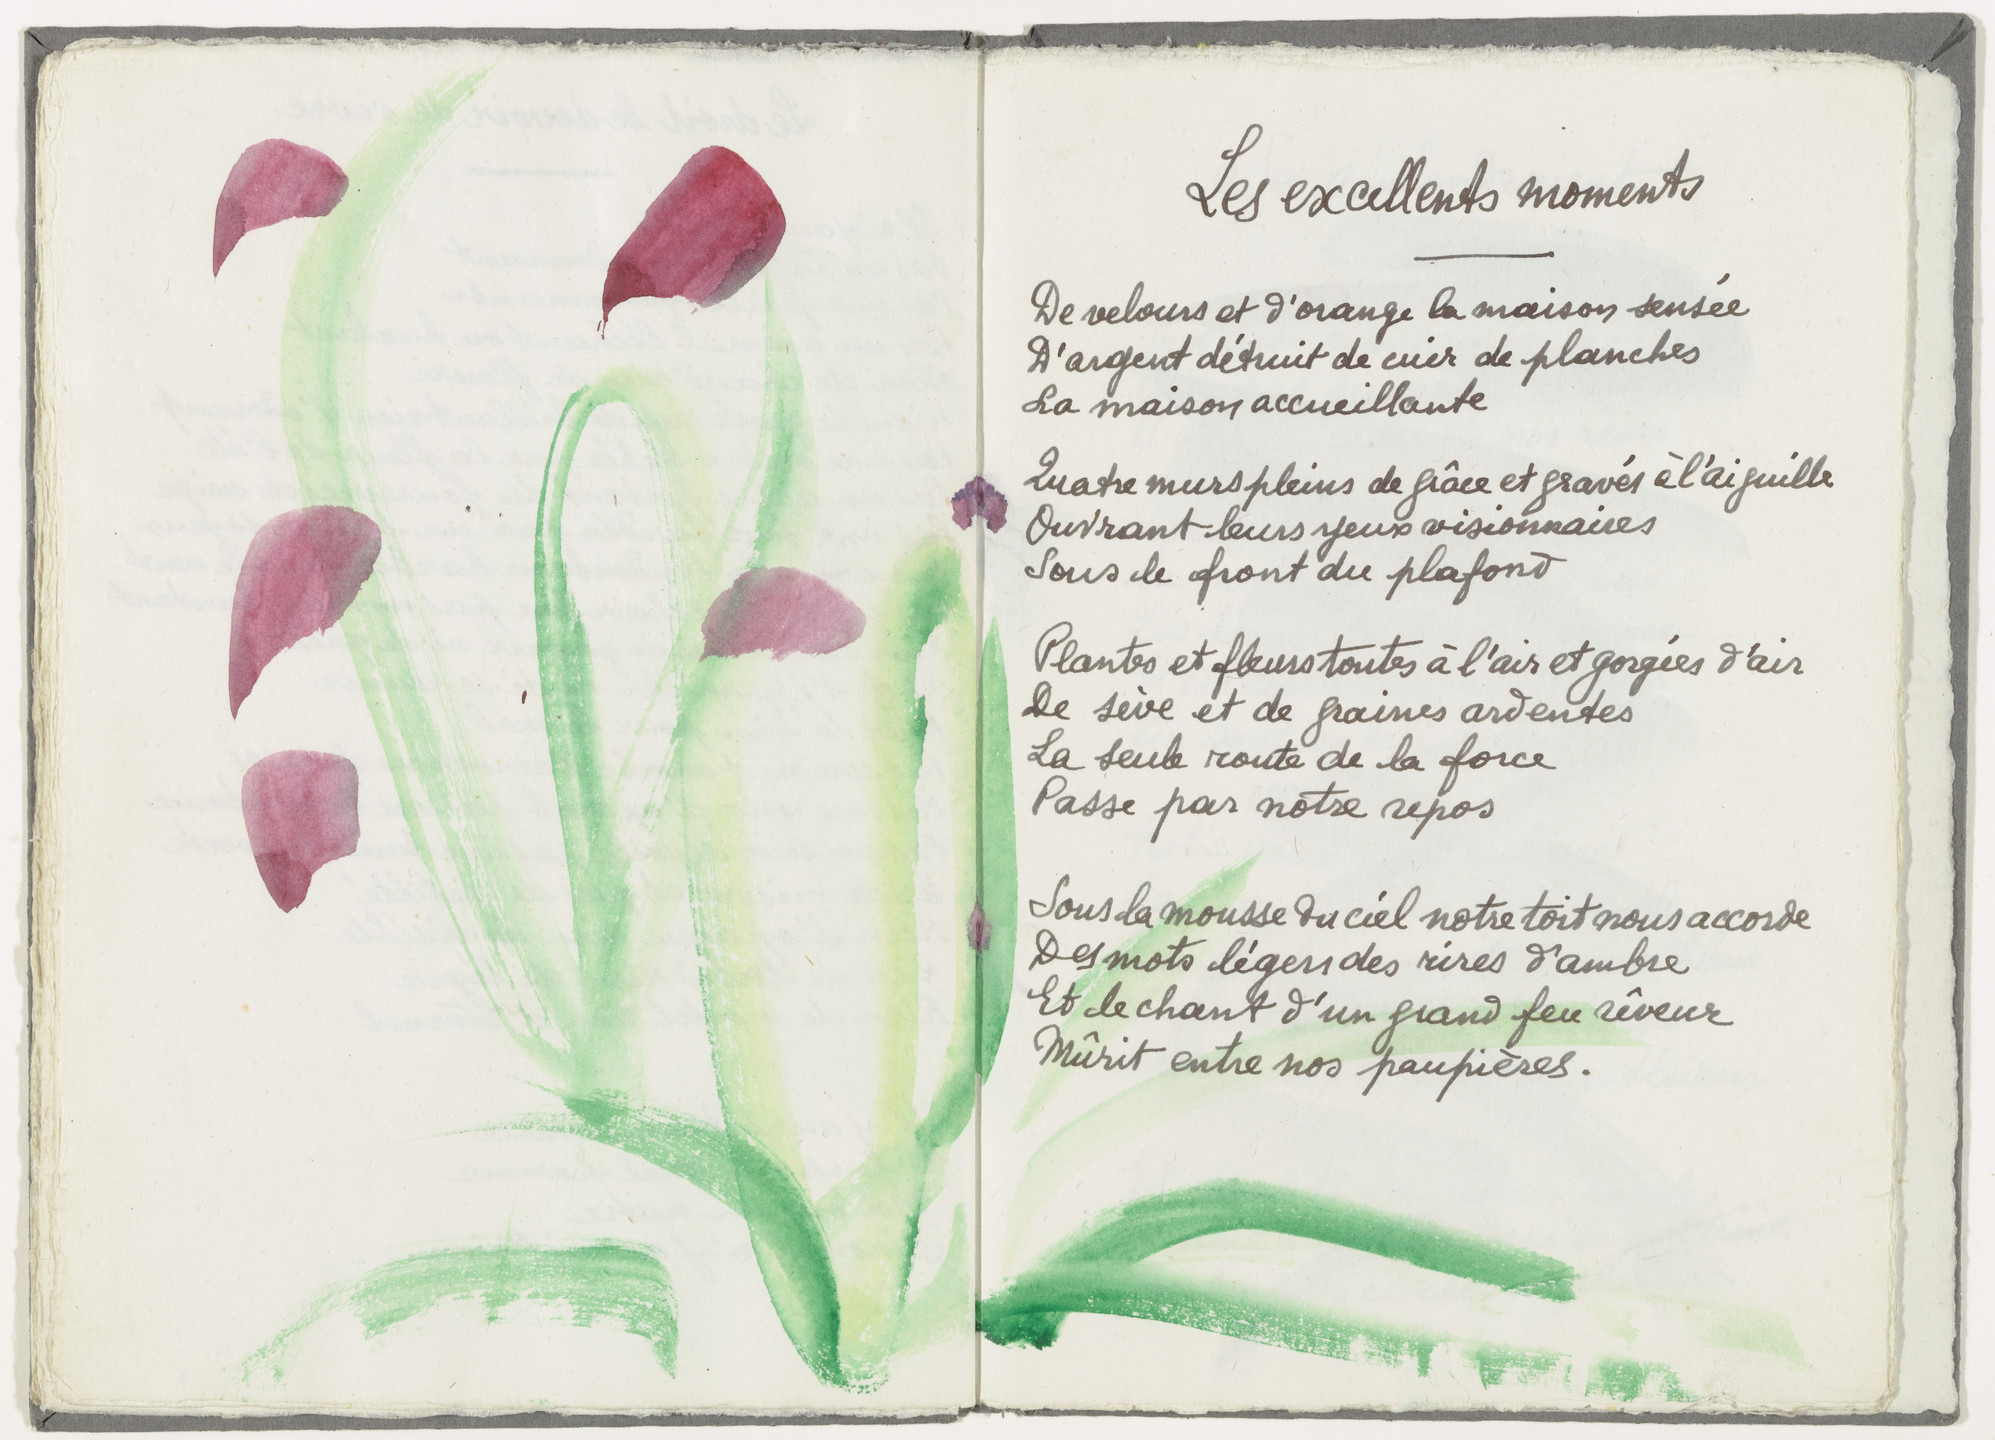 Les excellents moments
De velours et d'orange la maison sensée
D'argent détruit de cuir de planches
La maison accueillante
Quatre murs pleins de grâce et gravés à l'aiguille
Ouvrant leurs yeux visionnaires
Sous le front du plafond
Plantes et fleurs toutes à l'air et gorgées d'air
De sève et de graines ardentes
La seule route de la force
Passe par notre repos
Sous la mousse du ciel notre toit nous accorde
Des mots légers des rires d'ambre
Et le chant d'un grand feu rêveur
Mûrit entre nos paupières.